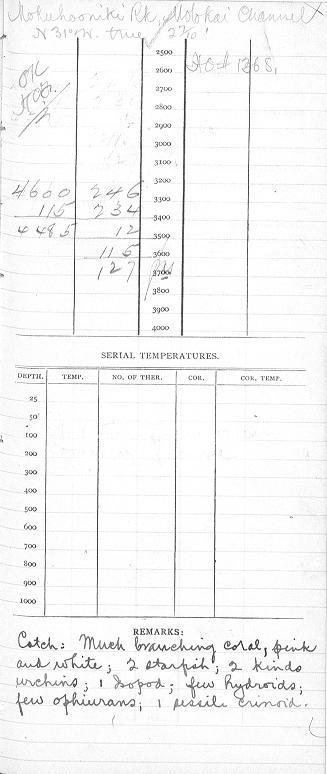 Mokuhooniki Rk, Molokai Channel
N 31° W. true, 2 7/10'
2500
2600 H.O. # 1368,
OK
2700
2800
2900
3000
3100
3200
4600 246 3300
115 234 3400
4485 12 3500
115 3600
127 3700
3800
3900
4000
SERIAL TEMPERATURES.
DEPTH. TEMP. NO. OF THER. COR. COR. TEMP.
25
50
100
200
300
400
500
600
700
800
900
1000
REMARKS:
Catch: Much branching coral, pink
and white; 2 starfish; 2 kinds
urchins; 1 Isopod; few hydroids;
few ophiurans; 1 sessile crinoid.